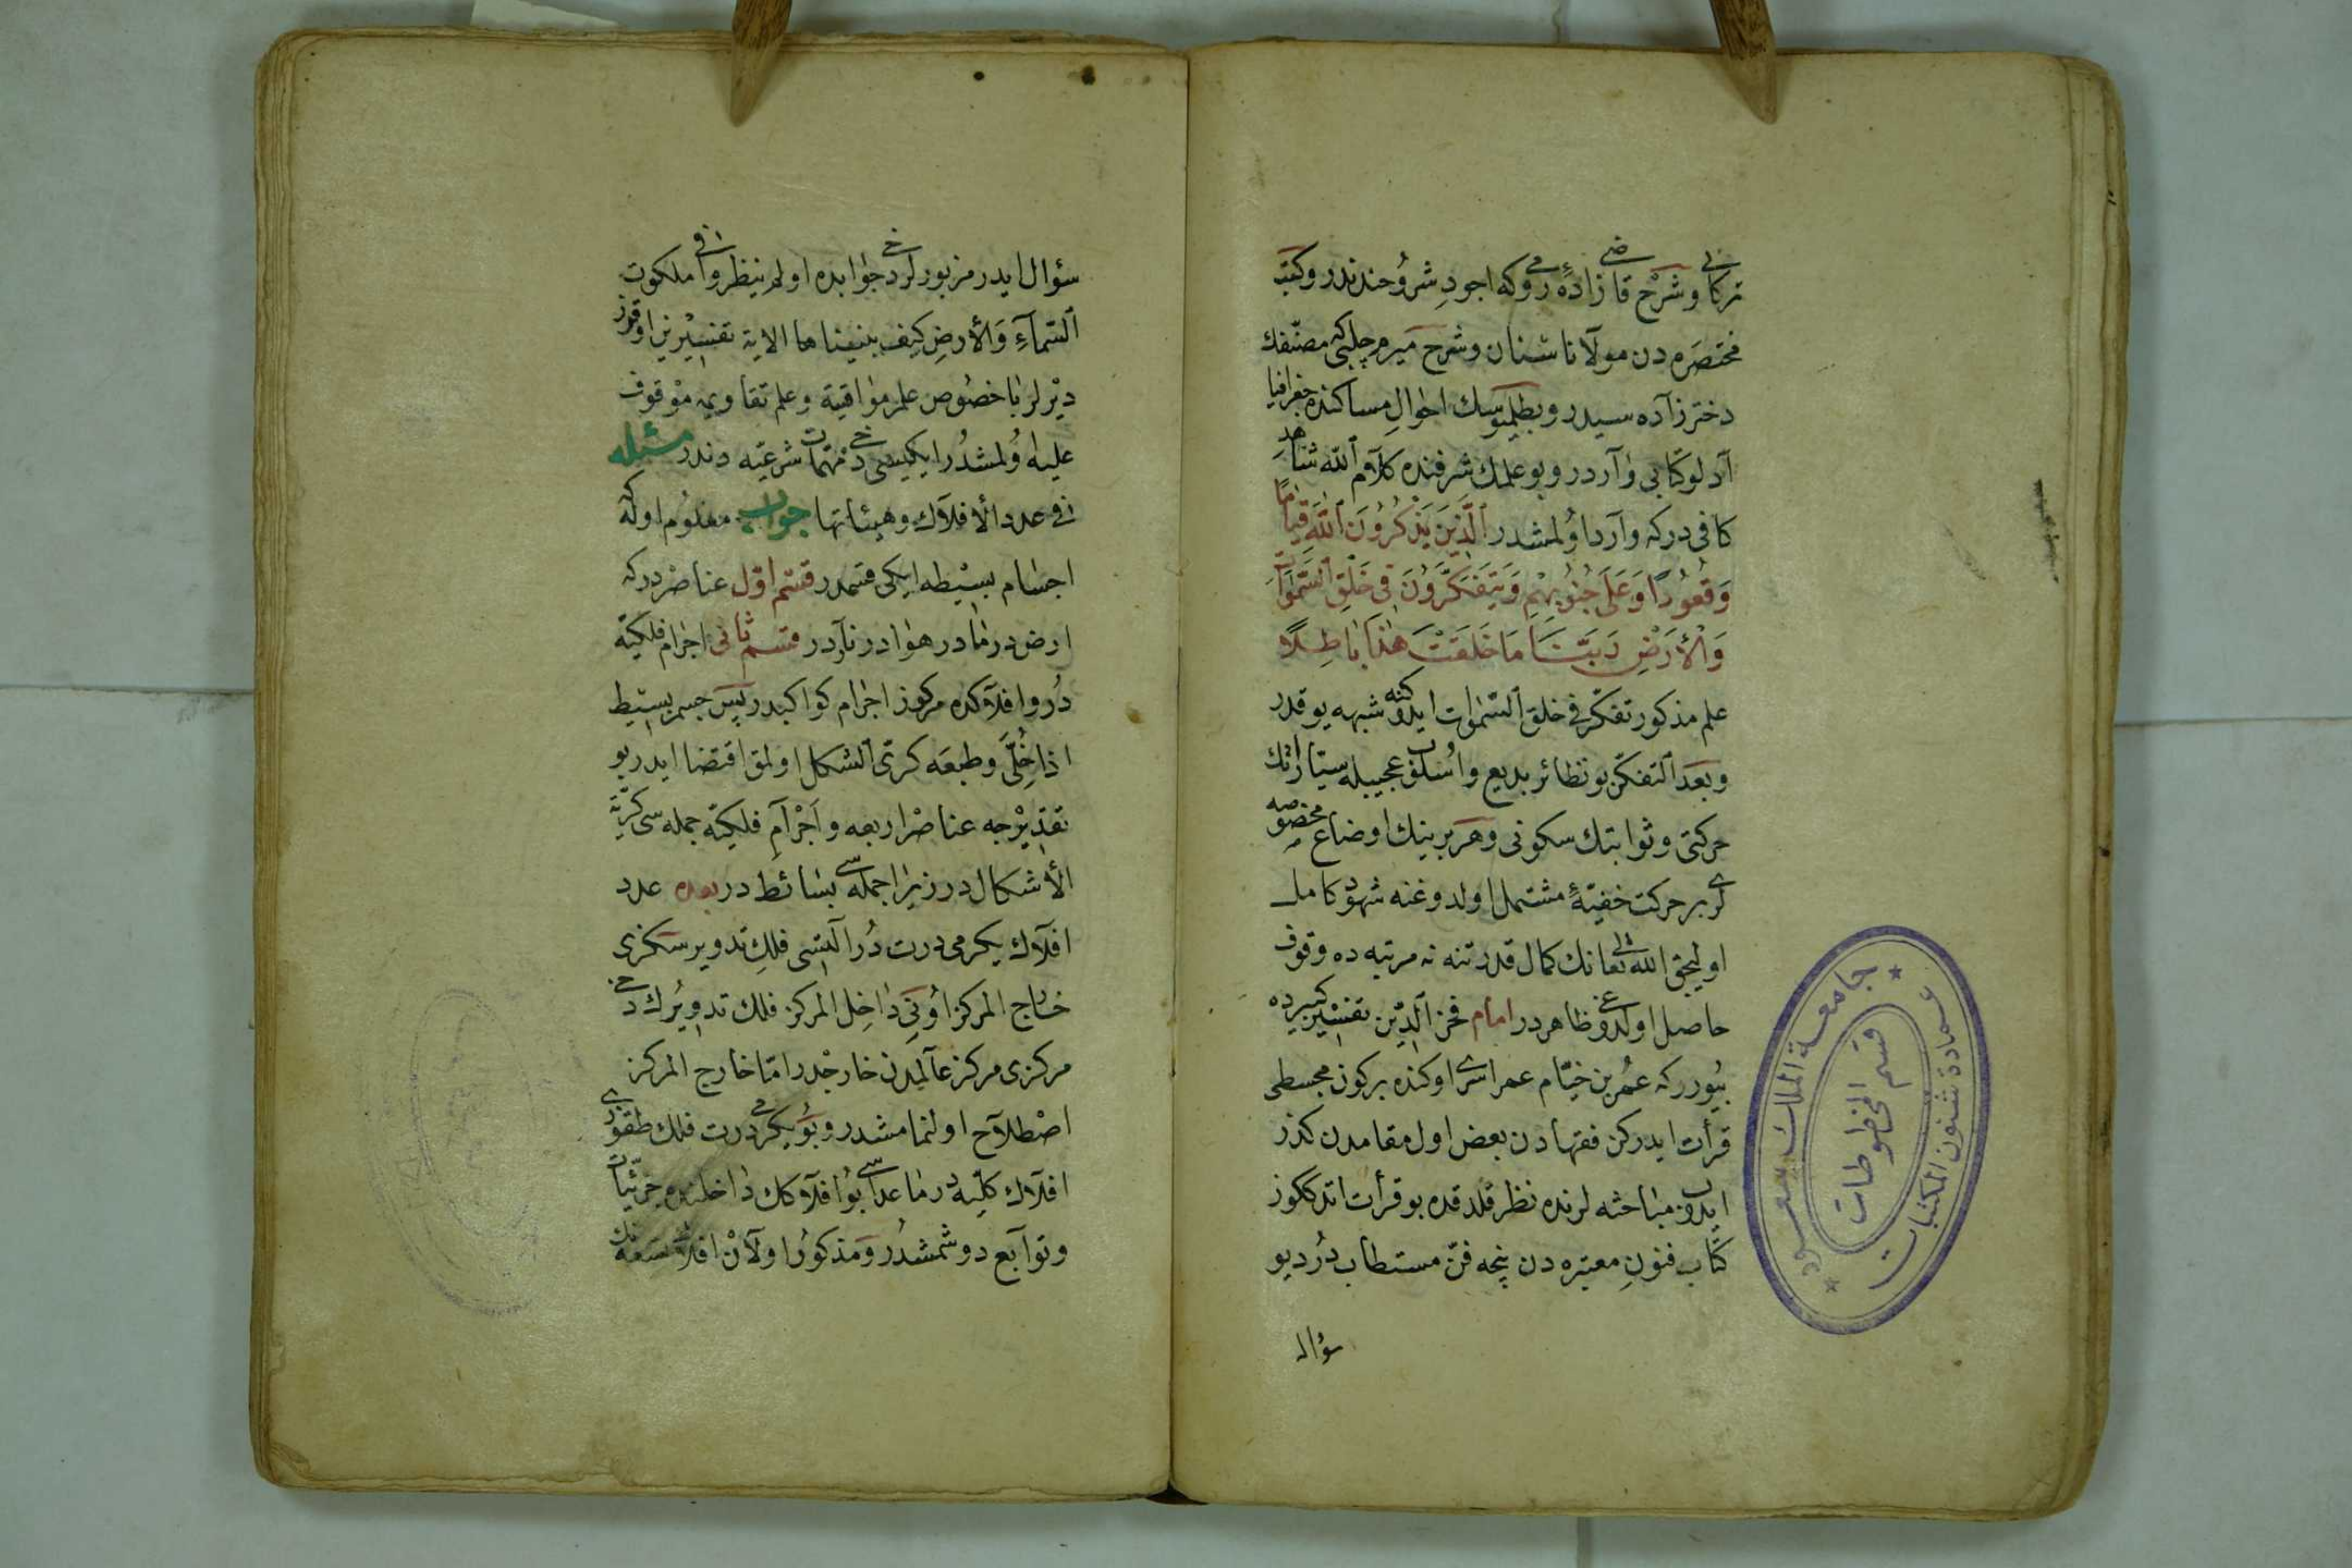 تركانی وشرح قاضی زادهٔ رومی که اجود شروحندندر وکتب
مختصره دن مولانا سنان وشرح میرم چلبی که مصنفك
دختر زاده سیدر وبطلمیوسك احوال مساکنده جغرافیا
آدلو کتابی واردر وبو علمك شرفنده کلام الله شاهد
کافی درکه وارد اولمشدر الَّذِينَ يَذْكُرُونَ اللَّهَ قِيَامًا
وَقُعُودًا وَعَلَى جُنُوبِهِمْ وَيَتَفَكَّرُونَ فِي خَلْقِ السَّمَوَاتِ
وَالْأَرْضِ رَبَّنَا مَا خَلَقْتَ هٰذَا بَاطِلًا
علم مذکور تفکر فی خلق السموات ایدوکنه شبهه یوقدر
وبعد التفکر بو نظائر بدیع واسلوب عجیبیله سیاراتك
حرکتی وثوابتك سکونی وهر برینك اوضاع مخصوصه
لری بر حرکت خفیهٔ مشتمل اولدوغنه شهود کامل
اولیجق الله تعالی نك کمال قدرتنه نه مرتبه ده وقوف
حاصل اولدوغی ظاهردر امام فخر الدین تفسیر کبیرده
بیوررکه عمر بن خیام عمر اوکنده برکون مجسطی
قرأت ایدرکن فقهادن بعض اول مقامدن کذر
ایدوب مباحثه لرنده نظر قلدقده بو قرأت اتدککوز
کتاب فنون معتبره دن نیجه فن مستطاب در دیو
سؤال
سؤال ایدر مزبورلر دخی جوابده اولم ینظروا فی ملکوت
السماء والأرض کیف بنیناها الایة تفسیرین اوقورز
دیرلر باخصوص علم مواقیة وعلم تقاویم موقوف
علیه اولمشدر ایکیسی دخی مهمات شرعیه دندر مسئله
فی عدد الأفلاك وهیئاتها جواب معلوم اوله که
اجسام بسیطه ایکی قسمدر قسم اول عناصردرکه
ارض در ما در هوا در نار در قسم ثانی اجرام فلکیه
در وافلاکده مرکوز اجرام کواکبدر پس جسم بسیط
اذا خلی وطبعه کری الشکل اولمق اقتضا ایدر بو
تقدیرجه عناصر اربعه واجرام فلکیه جمله سی کریة
الأشکال در زیرا جمله سی بسائط در بعده عدد
افلاك یکرمی درت در التیسی فلك تدویر سکزی
خارج المرکز اونی داخل المرکز فلك تدویرك دخی
مرکزی مرکز عالمدن خارجدر اما خارج المرکز
اصطلاح اولنمامشدر وبو یکرمی درت فلك طقوزی
افلاك کلیه در ماعداسی بو افلاکك داخلنده جزئیات
وتوابع دوشمشدر ومذکور اولان افلاك تسعه نك
جامعة الملك سعود
عمادة شئون المكتبات
قسم المخطوطات